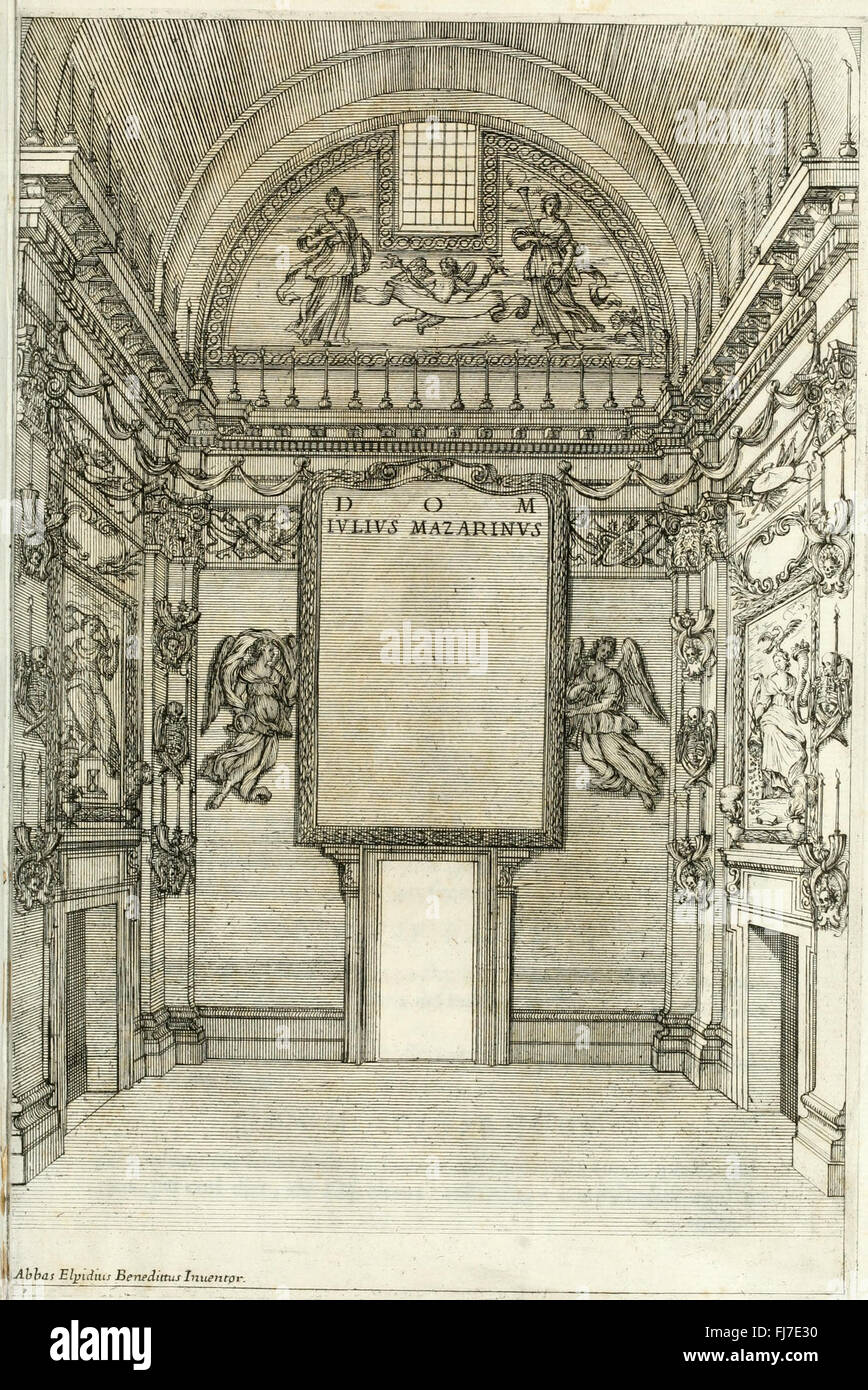 D O M
IVLIVS MAZARINVS
Abbas Elpidius Benedittus Inuentor.
alamy
alamy
Image ID: FJ7E30
www.alamy.com